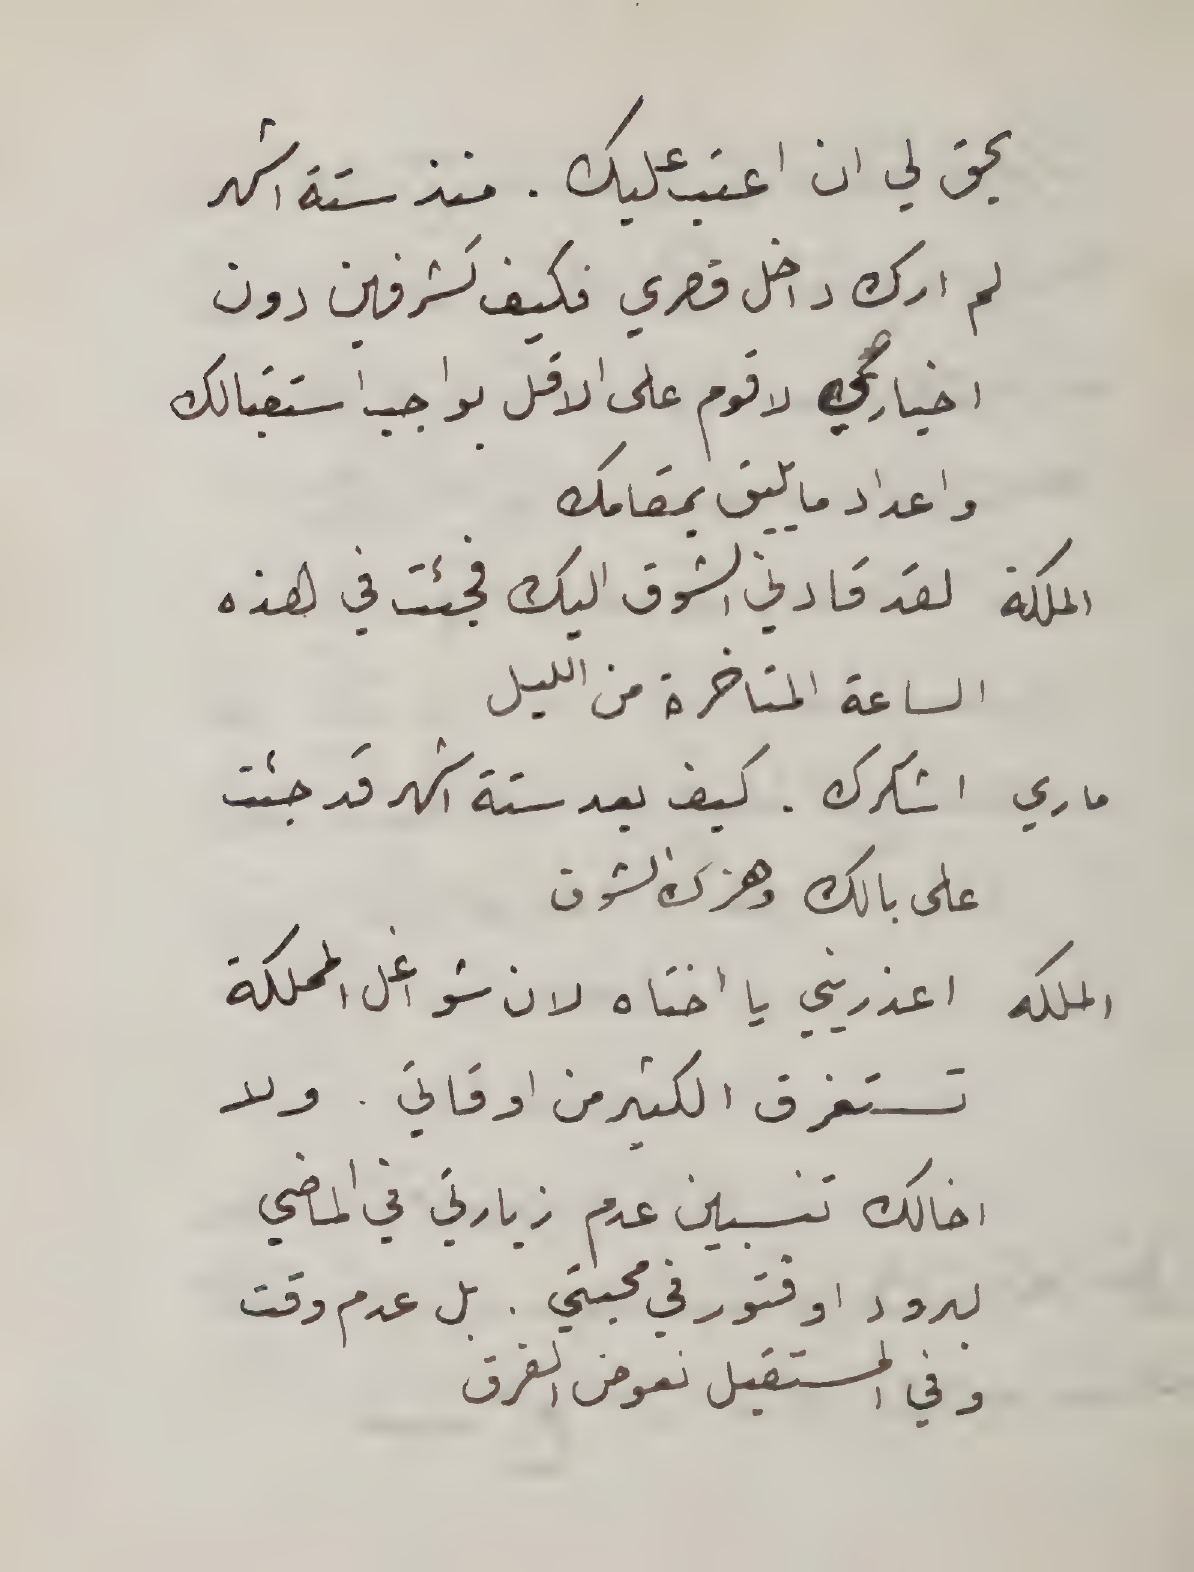 يحق لي ان اعتب عليك . منذ ستة اشهر
لم ارك داخل قصري فكيف تشرفين دون
اخباري لاقوم على الاقل بواجب استقبالك
واعداد ما يليق بمقامك
الملكة لقد قادني الشوق اليك فجئت في هذه
الساعة المتاخرة من الليل
ماري اشكرك . كيف بعد ستة اشهر قد جئت
على بالك وهزك الشوق
الملكه اعذريني يا اختاه لان شواغل المملكة
تستغرق الكثير من اوقاتي . ولا
اخالك تنسبين عدم زيارتي في الماضي
لبرود او فتور في محبتي . بل عدم وقت
وفي المستقبل نعوض الفرق